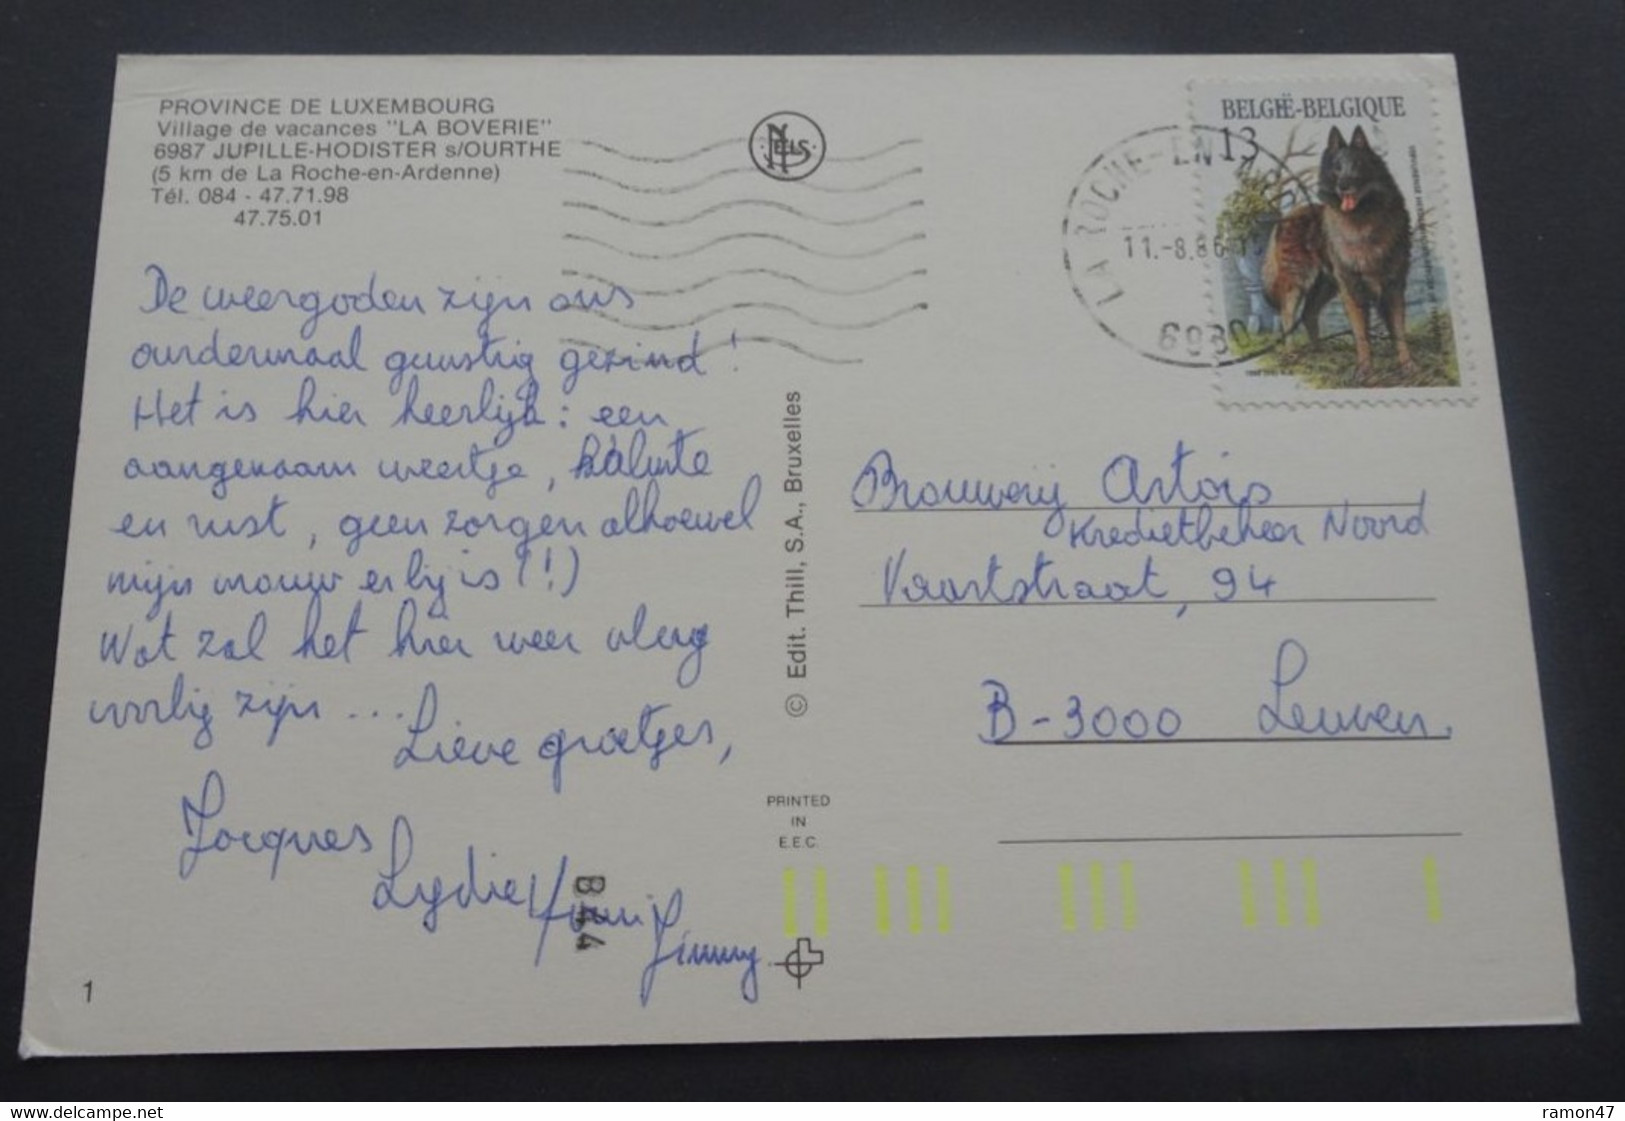 PROVINCE DE LUXEMBOURG
Village de vacances "LA BOVERIE"
6987 JUPILLE-HODISTER s/OURTHE
(5 km de La Roche-en-Ardenne)
Tél. 084 - 47.71.98
47.75.01
De weergoden zijn ons
andermaal gunstig gezind!
Het is hier heerlijk: een
aangenaam weertje, kalmte
en rust, geen zorgen alhoewel
mijn vrouw erbij is (!)
Wat zal het hier weer vlug
voorbij zijn ...
Lieve groetjes,
Jacques
Lydie
Jimmy
B44
1
NELS
© Edit. Thill, S.A., Bruxelles
PRINTED
IN
E.E.C.
BELGIË-BELGIQUE
13
LA ROCHE-EN
11.-8.86
6980
Brouwerij Artois
Kredietbeheer Noord
Vaartstraat, 94
B-3000 Leuven
www.delcampe.net
ramon47